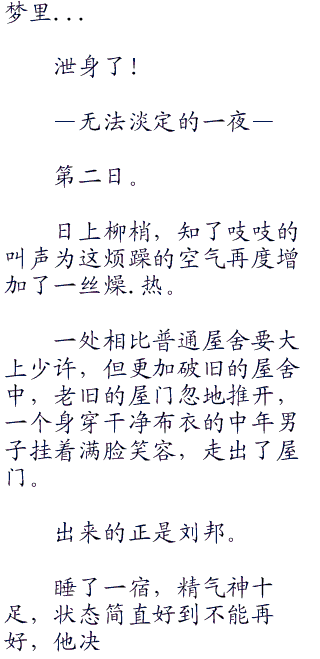 梦里...
泄身了！
—无法淡定的一夜—
第二日。
日上柳梢，知了吱吱的
叫声为这烦躁的空气再度增
加了一丝燥.热。
一处相比普通屋舍要大
上少许，但更加破旧的屋舍
中，老旧的屋门忽地推开，
一个身穿干净布衣的中年男
子挂着满脸笑容，走出了屋
门。
出来的正是刘邦。
睡了一宿，精气神十
足，状态简直好到不能再
好，他决